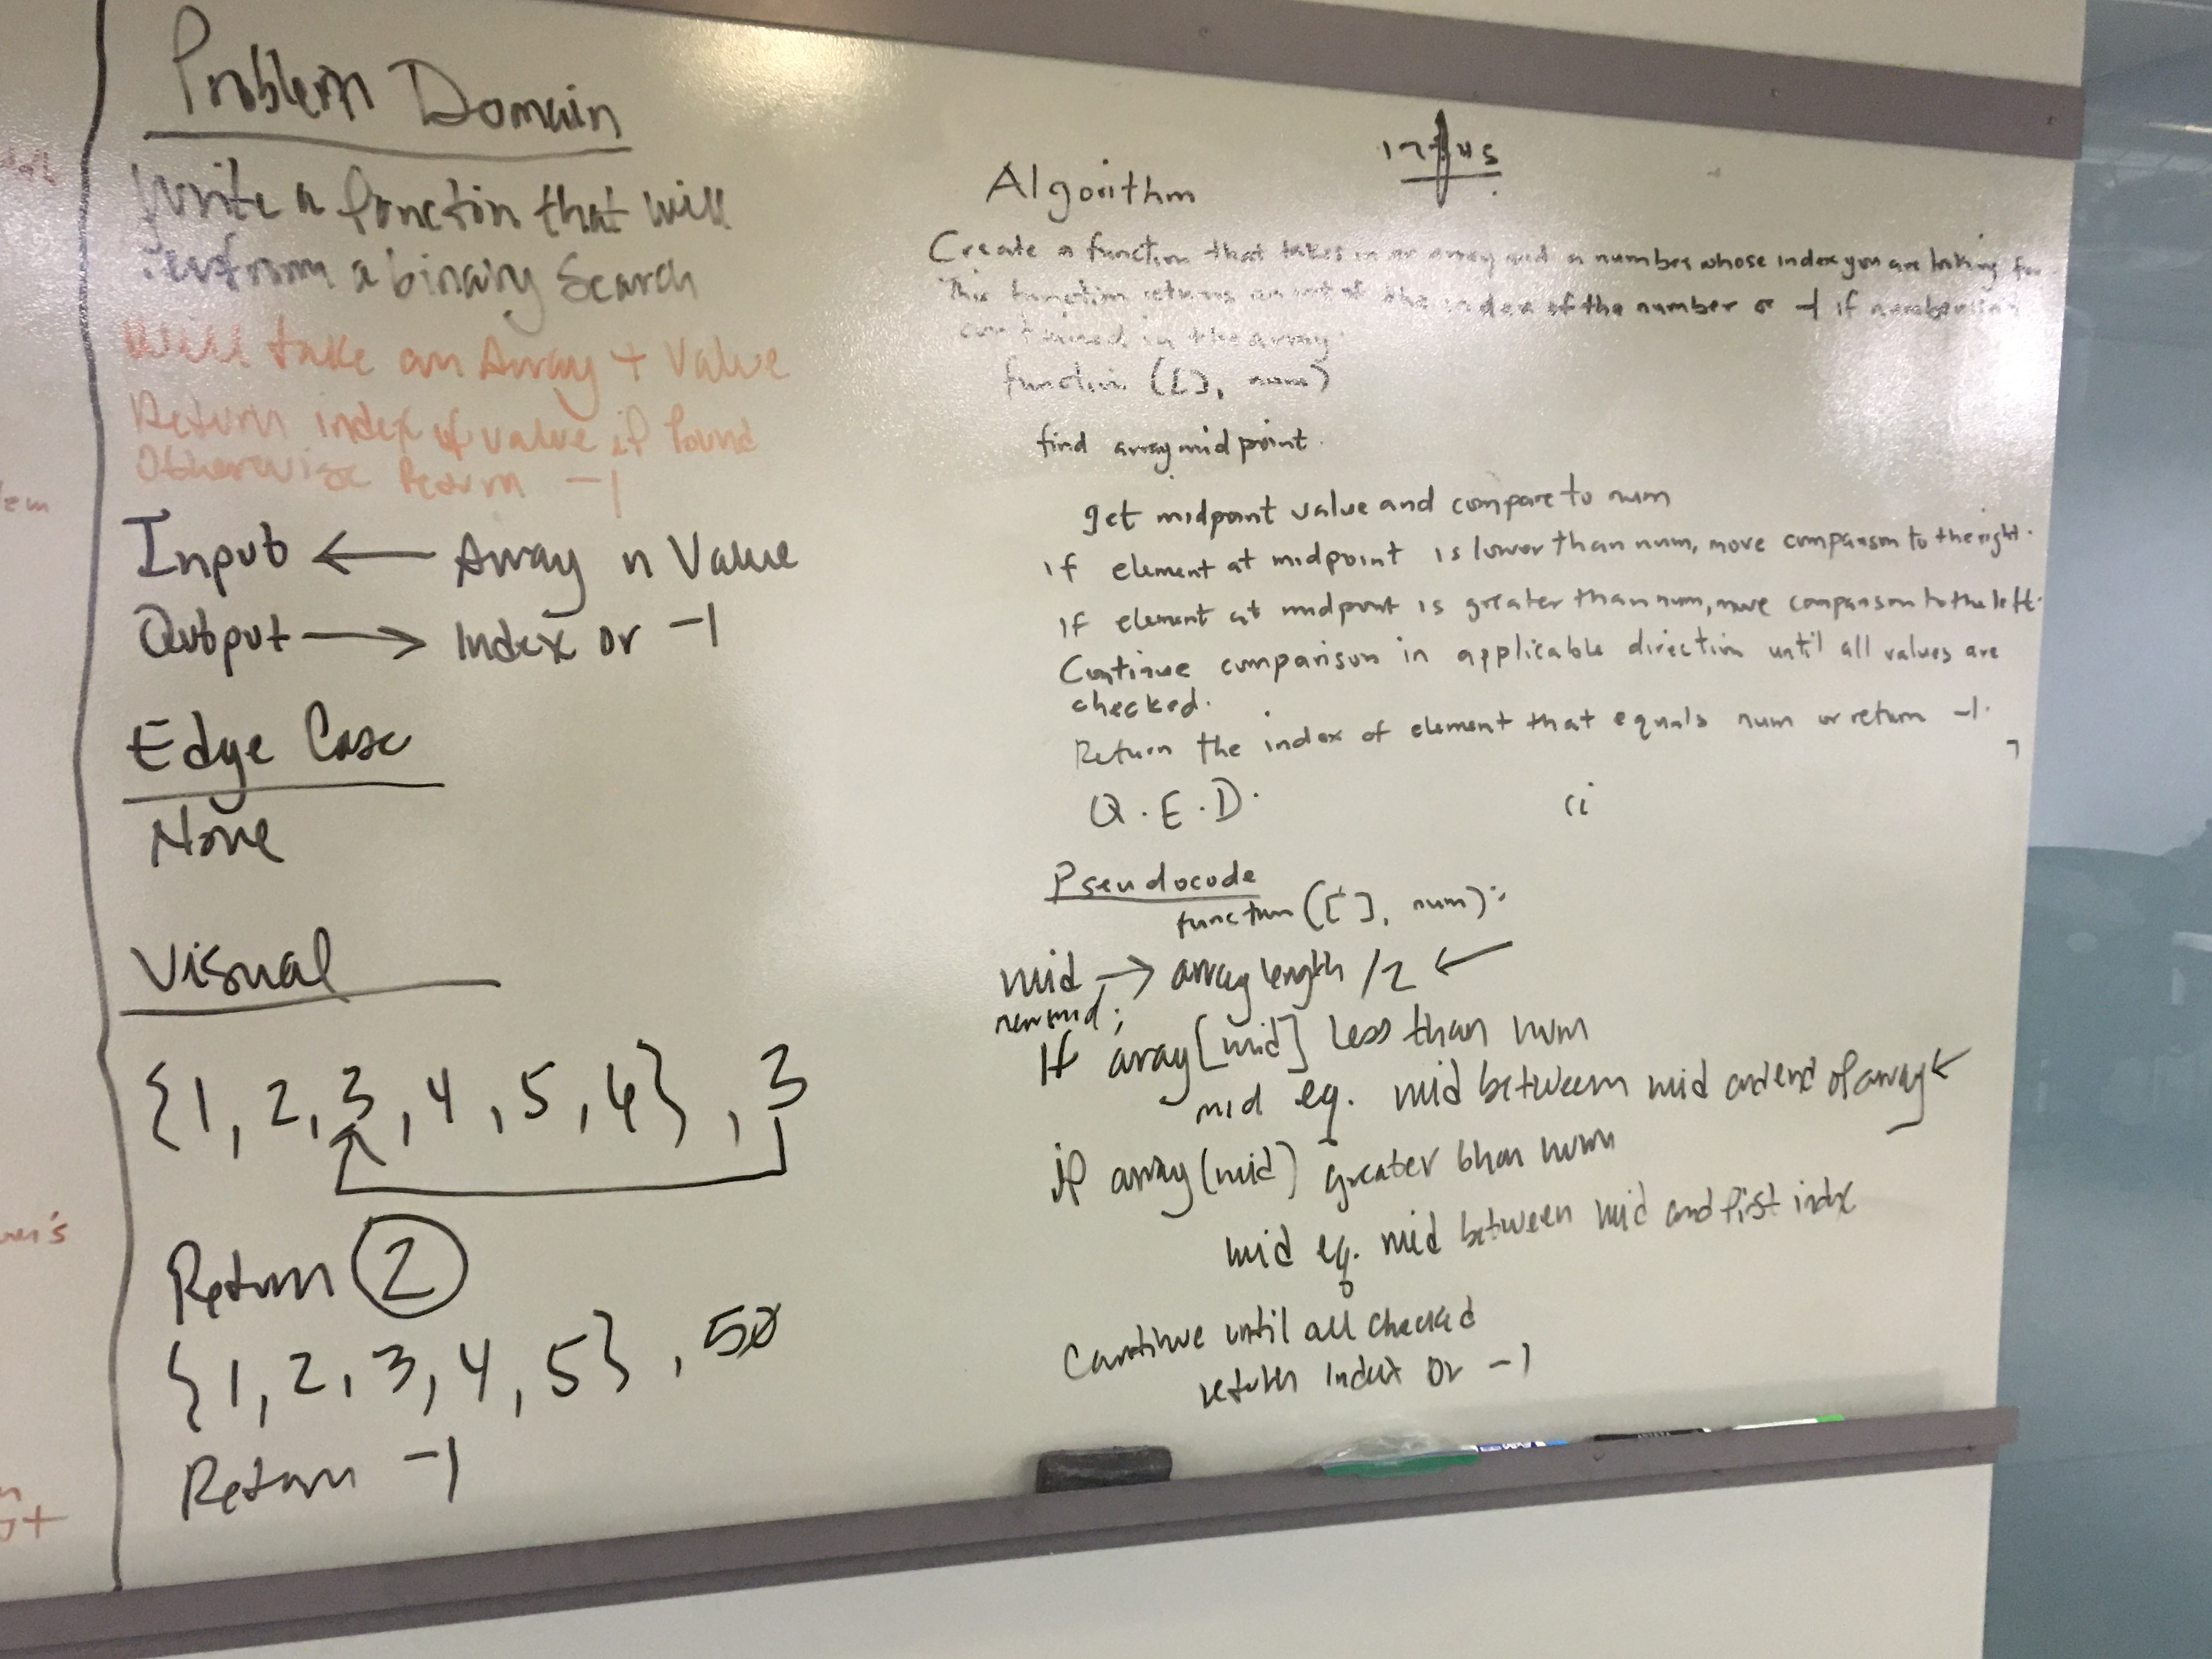 Problem Domain
Write a function that will
Perfrom a binary Search
Will take an Array + Value
Return index of value if found
Otherwise Return -1
Input ← Array n Value
Output → Index or -1
Edge Case
None
Visual
{1, 2, 3, 4, 5, 6}, 3
Return 2
{1, 2, 3, 4, 5}, 50
Return -1
Algorithm
Create a function that takes in an array and a number whose index you are looking for
This function returns an int of the index of the number or -1 if number isn't
contained in the array.
function ([], num)
find array midpoint.
get midpoint value and compare to num
if element at midpoint is lower than num, move comparison to the right.
If element at midpoint is greater than num, move comparison to the left.
Continue comparison in applicable direction until all values are
checked.
Return the index of element that equals num or return -1.
Q.E.D.
(i
Pseudocode
function ([], num):
mid → array length /2 ←
new mid;
If array[mid] less than num
mid eq. mid between mid and end of array ←
if array(mid) greater than num
mid eq. mid between mid and first index
Continue until all checked
return index or -1
em
er's